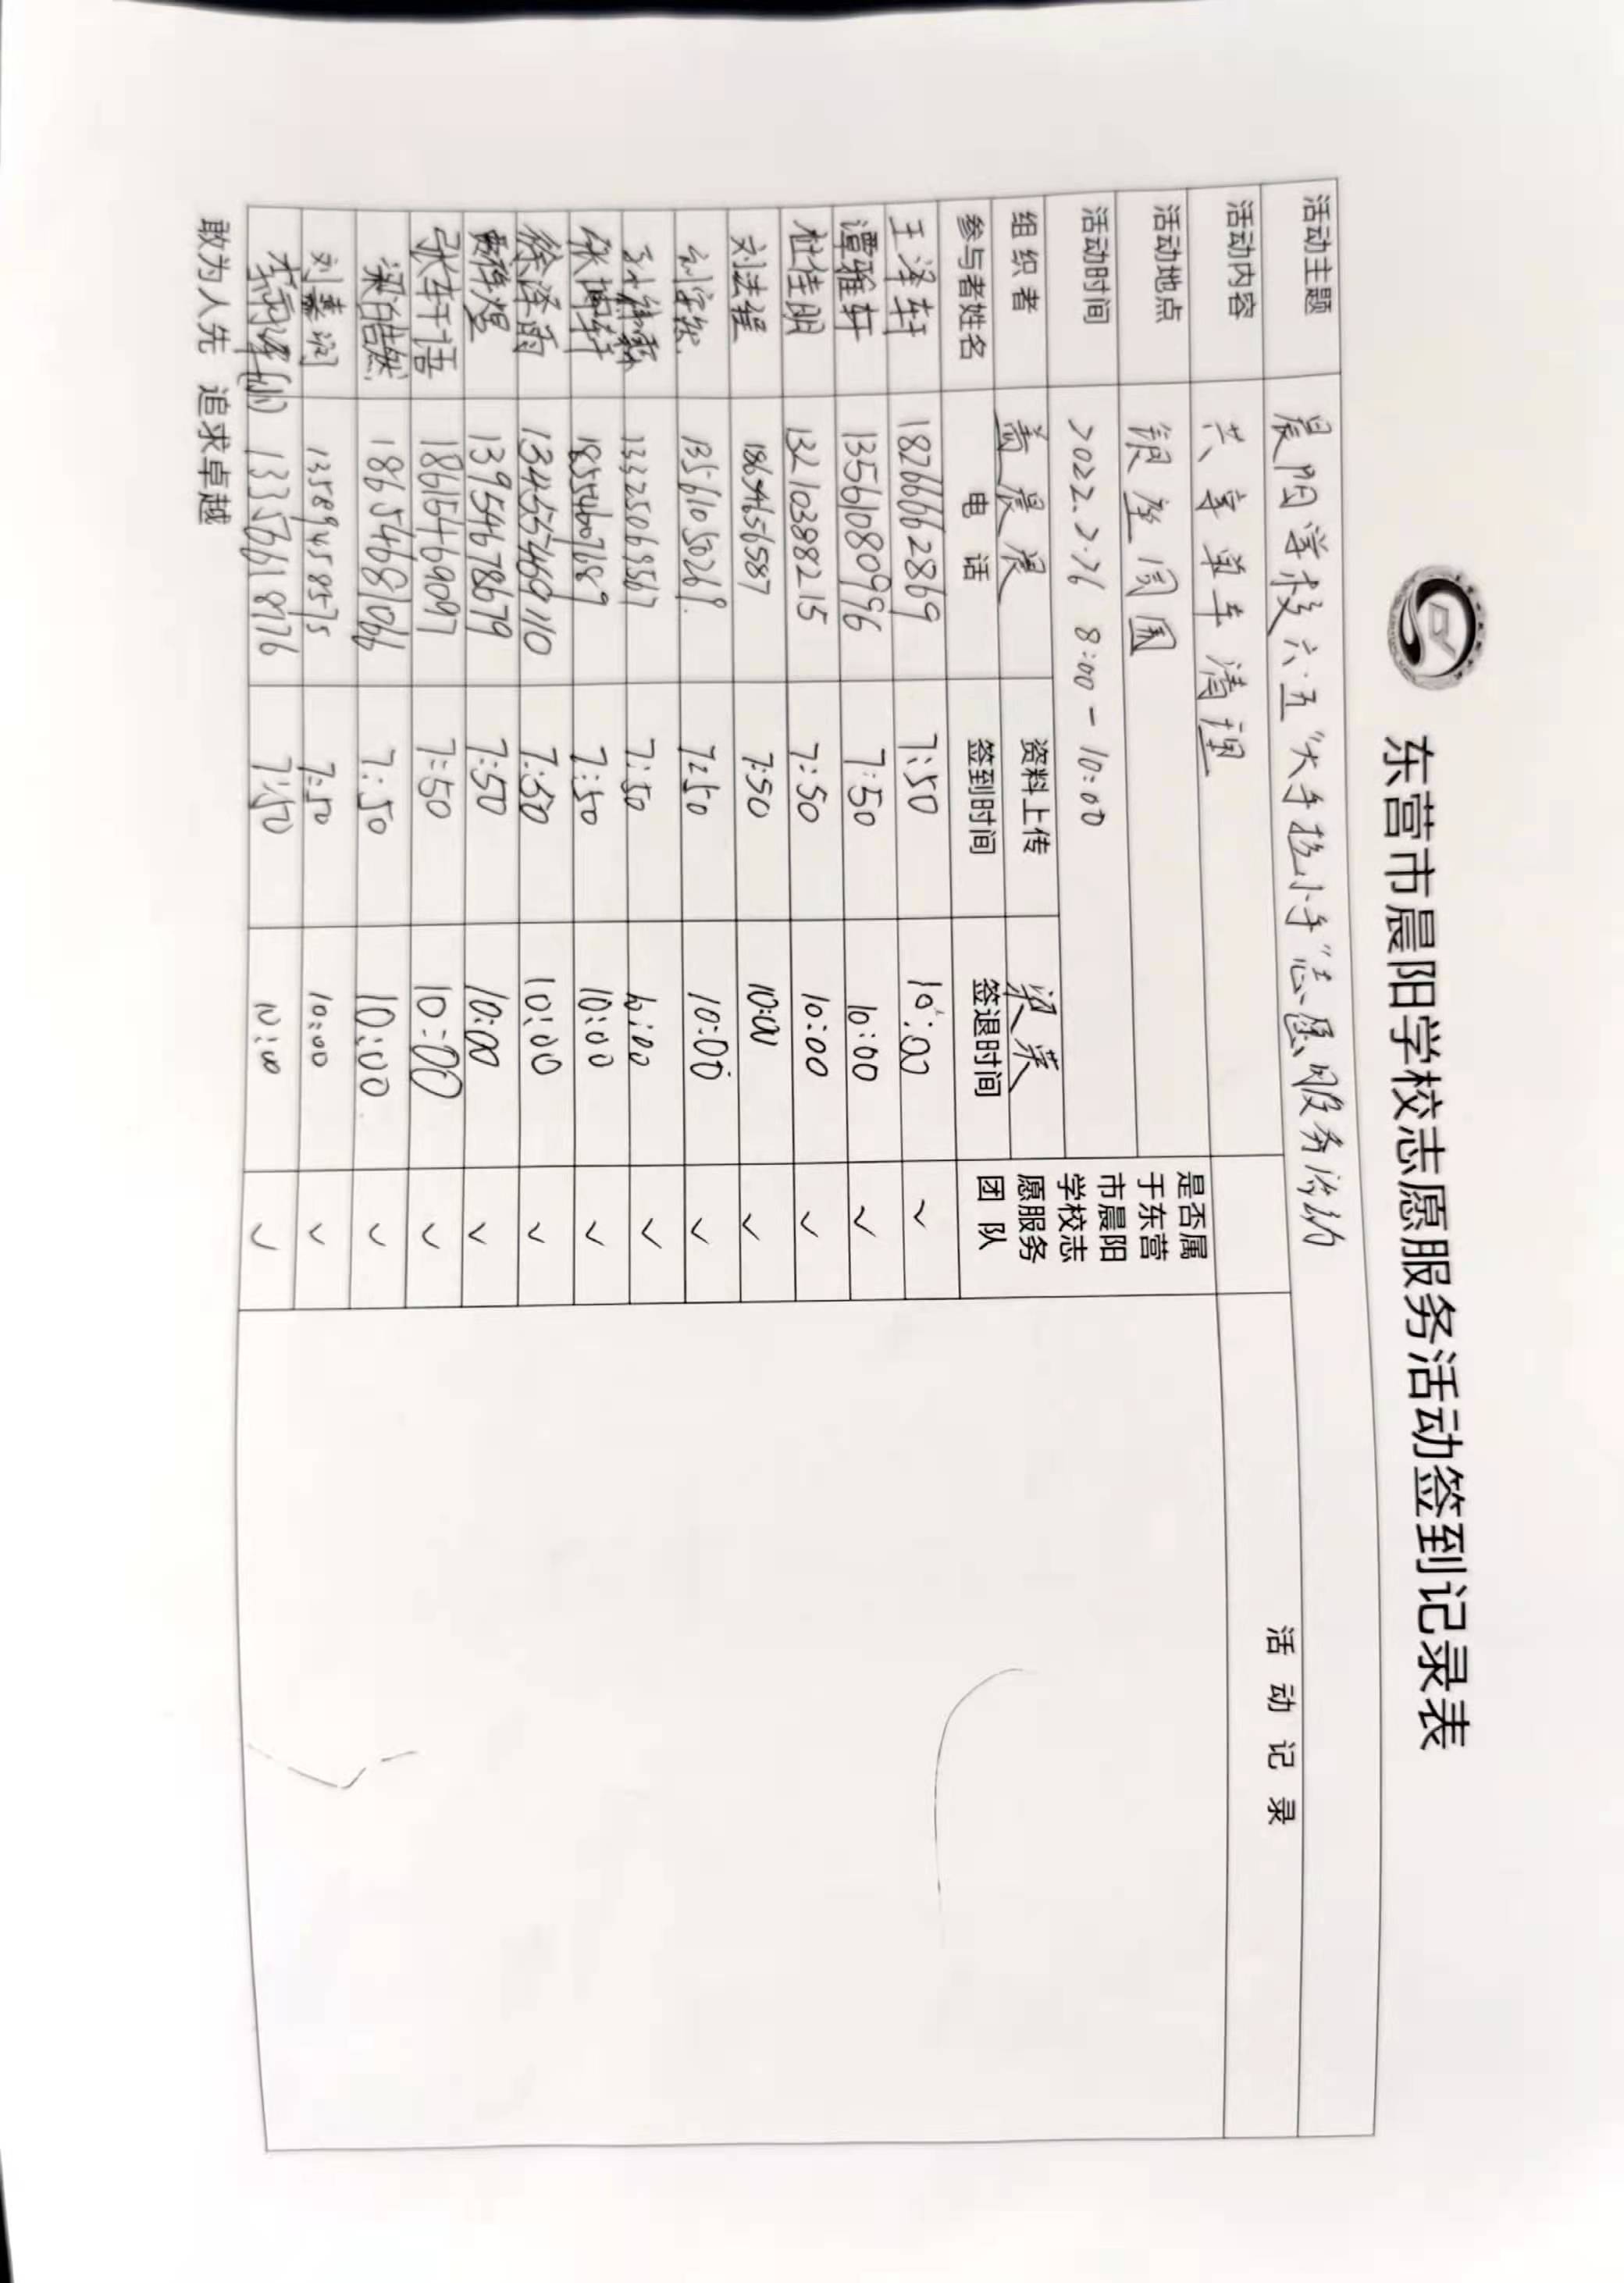 东营市晨阳学校志愿服务活动签到记录表
活动主题 晨阳学校六·五“大手拉小手”志愿服务活动
活动内容 共享单车清理 活动记录
活动地点 银座周围 是否属于东营市晨阳学校志愿服务团队
活动时间 2022.2.26 8:00-10:00
组织者 晨晨 资料上传 梁英
参与者姓名 电话 签到时间 签退时间
王泽轩 18266662869 7:50 10:00 ✓
谭雅轩 13561080996 7:50 10:00 ✓
杜佳明 13210398215 7:50 10:00 ✓
刘法程 18654656587 7:50 10:00 ✓
刘宇宸 13561050268 7:50 10:00 ✓
7:50 10:00 ✓
张博轩 18554607689 7:50 10:00 ✓
徐泽雨 7:50 10:00 ✓
13954678679 7:50 10:00 ✓
张轩语 18615469097 7:50 10:00 ✓
梁皓然 18654681066 7:50 10:00 ✓
刘 13589458575 7:50 10:00 ✓
李雨泽(小) 13356618776 7:50 10:00 ✓
敢为人先 追求卓越